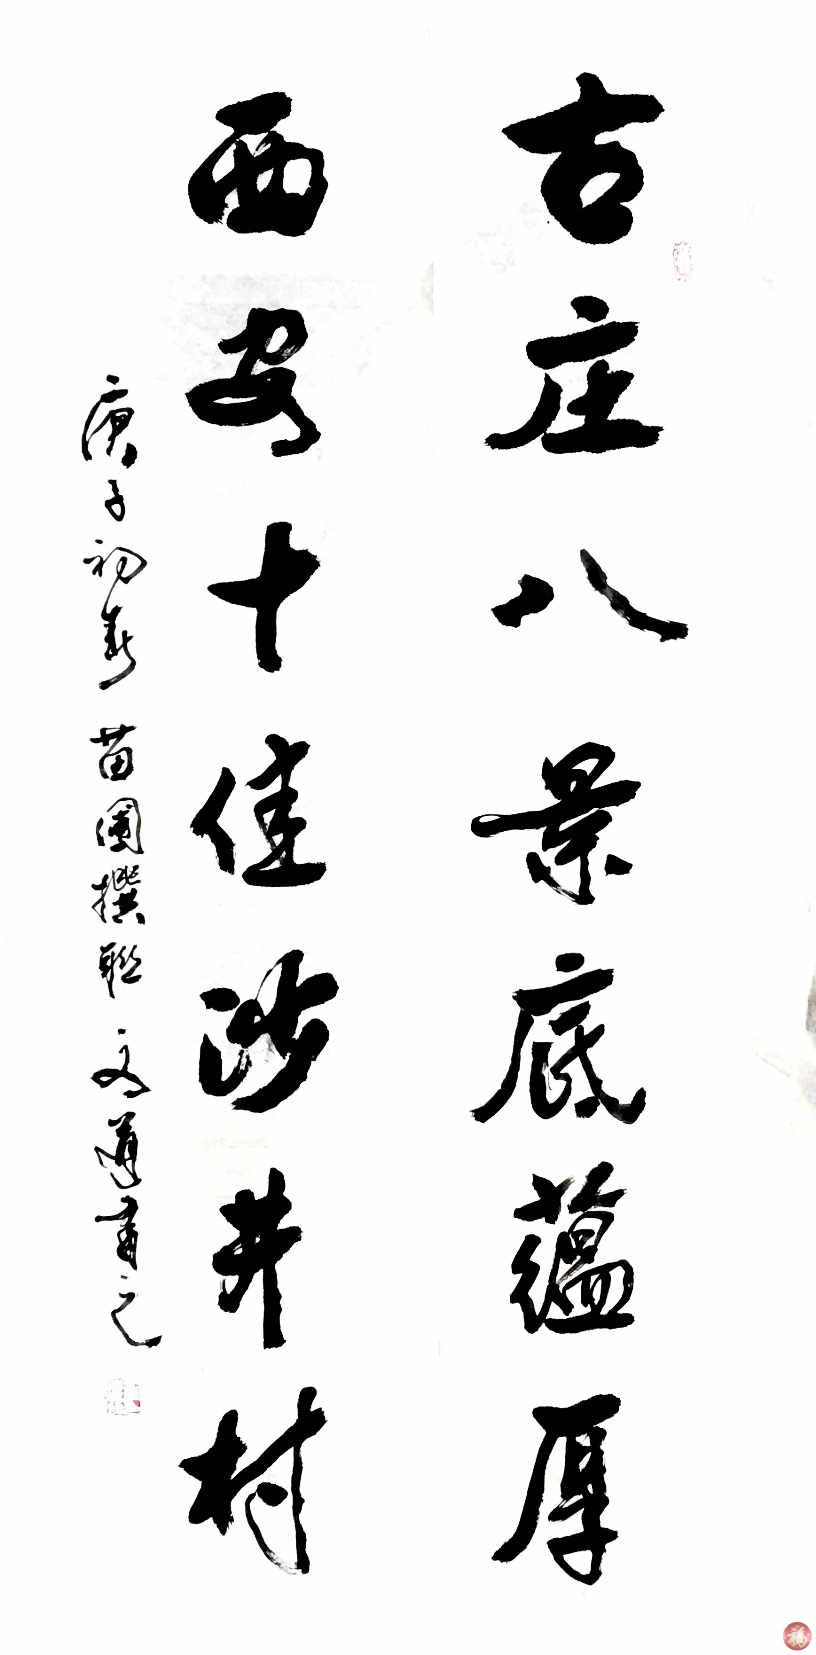 古庄八景底蕴厚
西安十佳涉井村
庚子初春 苗圃撰联 文道书之